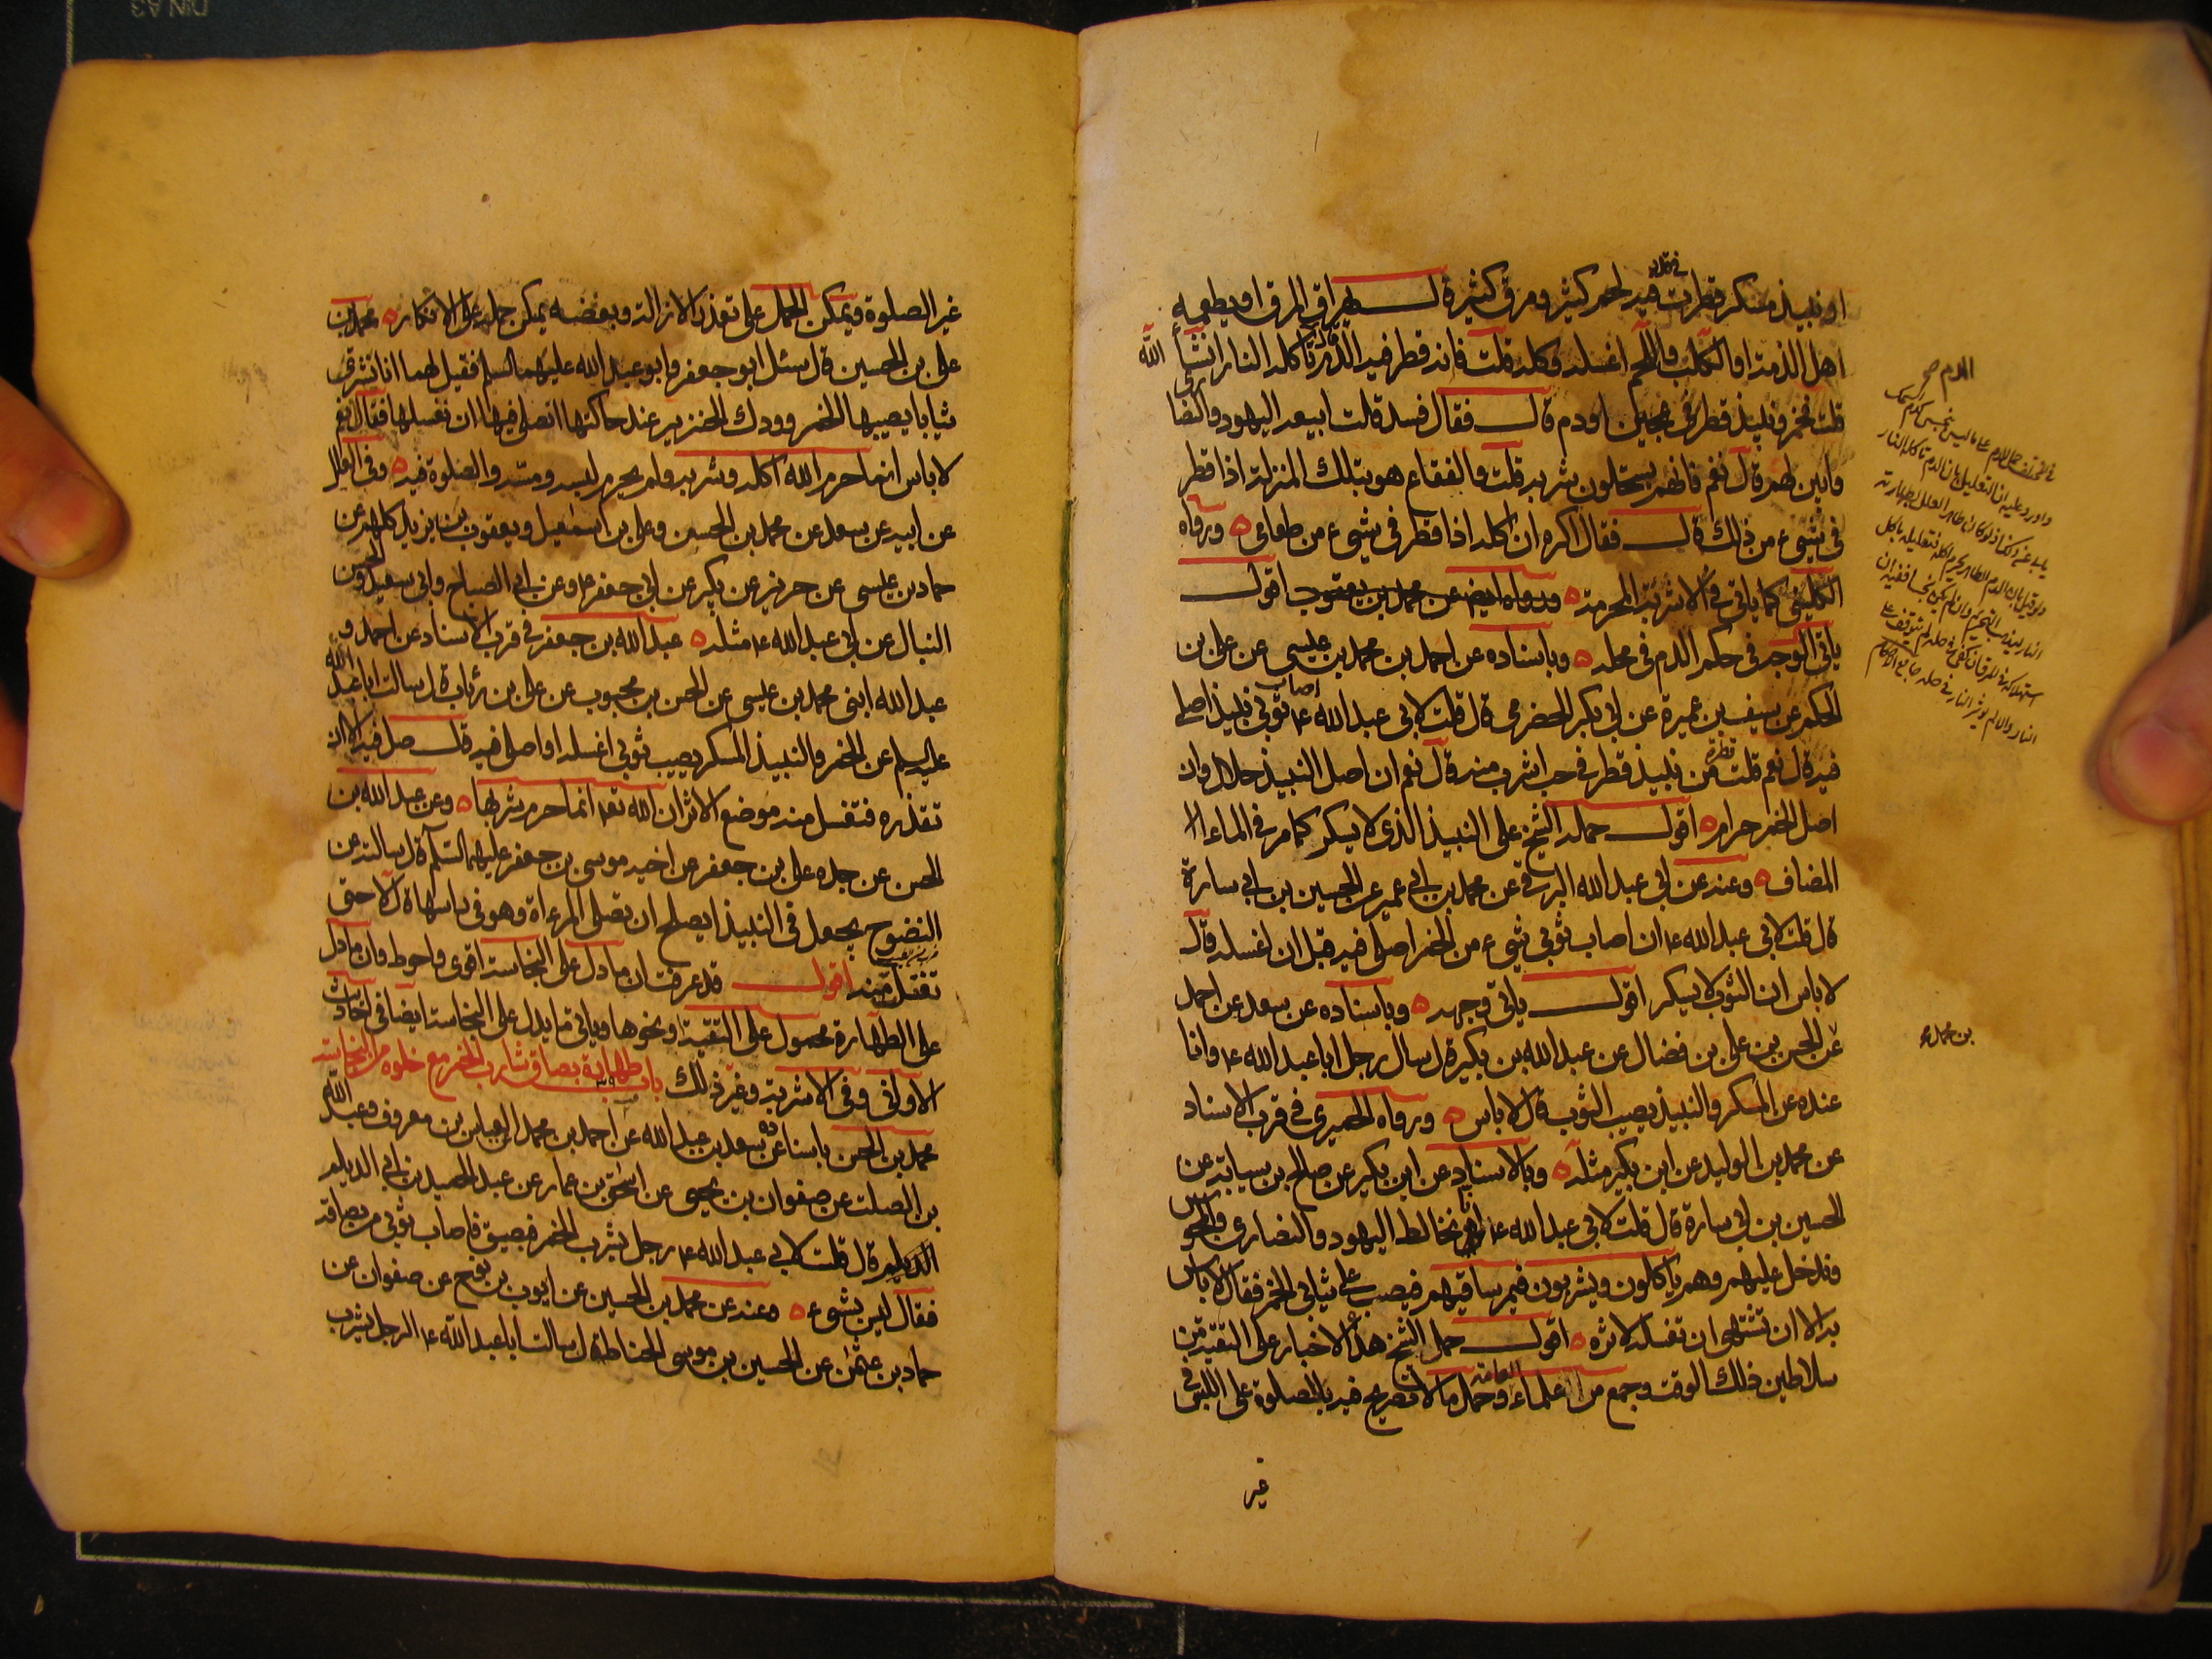 او نبيذ مسكر قطرت في قدر فيه لحم كثير ومرق كثيرة قال يهراق المرق او يطعمه
اهل الذمة او الكلب واللحم اغسله وكله قلت فانه قطر فيه الدم قال الدم تأكله النار انشأ الله
قلت فخمر ونبيذ قطر في عجين او دم قال فقال فسد قلت ابيعه اليهود والنصارى
وابين لهم قال نعم فانهم يستحلون شربه قلت والفقاع هو بتلك المنزلة اذا قطر
في شيء من ذلك قال فقال اكره ان اكله اذا قطر في شيء من طعامي ورواه
الكليني كما ياتي في الاشربة المحرمة ورواه ايضا عن محمد بن يعقوب اقول
ياتي الوجه في حكم الدم في محله وباسناده عن احمد بن محمد بن عيسى عن علي بن
الحكم عن سيف بن عميرة عن ابي بكر الحضرمي قال قلت لابي عبد الله ع اصاب ثوبي نبيذ اصلي
فيه قال نعم قلت قطرة من نبيذ قطر في حب اشرب منه قال نعم ان اصل النبيذ حلال وان
اصل الخمر حرام اقول حمله الشيخ على النبيذ الذي لا يسكر كما مر في الماء
المضاف وعنه عن ابي عبد الله البرقي عن محمد بن ابي عمير عن الحسين بن ابي سارة
قال قلت لابي عبد الله ع ان اصاب ثوبي شيء من الخمر اصلي فيه قبل ان اغسله قال
لا باس ان الثوب لا يسكر اقول ياتي وجهه وباسناده عن سعد عن احمد
بن محمد
عن الحسن بن علي بن فضال عن عبد الله بن بكير قال سال رجل ابا عبد الله ع وانا
عنده عن المسكر والنبيذ يصيب الثوب قال لا باس ورواه الحميري في قرب الاسناد
عن محمد بن الوليد عن ابن بكير مثله وبالاسناد عن ابن بكير عن صالح بن سيابة عن
الحسين بن ابي سارة قال قلت لابي عبد الله ع انا نخالط اليهود والنصارى والمجوس
وندخل عليهم وهم ياكلون ويشربون فيمر ساقيهم فيصب على ثيابي الخمر فقال لا باس
به الا ان تشتهي ان تغسله لاثره اقول حمل الشيخ هذه الاخبار على التقية من
سلاطين ذلك الوقت وجمع من علماء العامة وحمل ما لا تصريح فيه بالصلوة على اللبس في
غير
غير الصلوة ويمكن الحمل على تعذر الازالة وبعضه يمكن حمله على الانكار محمد بن
علي بن الحسين قال سئل ابو جعفر وابو عبد الله عليهما السلم فقيل لهما انا نشتري
ثيابا يصيبها الخمر وودك الخنزير عند حاكتها انصلي فيها ان نغسلها فقال نعم
لا باس انما حرم الله اكله وشربه ولم يحرم لبسه ومسه والصلوة فيه وفي العلل
عن ابيه عن سعد عن محمد بن الحسين وعلي بن اسمعيل ويعقوب بن يزيد كلهم عن
حماد بن عيسى عن حريز عن بكير عن ابي جعفر ع وعن ابي الصباح وابي سعيد والحسن
النبال عن ابي عبد الله ع مثله عبد الله بن جعفر في قرب الاسناد عن احمد و
عبد الله ابني محمد بن عيسى عن الحسن بن محبوب عن علي بن رئاب قال سالت ابا عبد الله
عليه السلم عن الخمر والنبيذ المسكر يصيب ثوبي اغسله او اصلي فيه قال صل فيه الا ان
تقذره فتغسل منه موضع الاثر ان الله تع انما حرم شربها وعن عبد الله بن
الحسن عن جده علي بن جعفر عن اخيه موسى بن جعفر عليهما السلم قال سالته عن
النضوح يجعل في النبيذ ايصلح ان تصلي المرءاة وهو في راسها قال لا حتى
تغتسل منه اقول قد عرفت ان ما دل على النجاسة اقوى واحوط وان ما دل
على الطهارة محمول على التقية ونحوها وياتي ما يدل على النجاسة ايضا في احاديث
الاواني وفي الاشربة وغير ذلك باب طهارة بصاق شارب الخمر مع خلوه من النجاسة
محمد بن الحسن باسناده عن سعد بن عبد الله عن احمد بن محمد العباس بن معروف وعبد الله
بن الصلت عن صفوان بن يحيى عن اسحق بن عمار عن عبد الحميد بن ابي الديلم
قال قلت لابي عبد الله ع رجل يشرب الخمر فيبصق فاصاب ثوبي من بصاقه
فقال ليس بشيء وعنه عن محمد بن الحسين عن ايوب بن نوح عن صفوان عن
حماد بن عثمن عن الحسين بن موسى الحناط قال سالت ابا عبد الله ع الرجل يشرب